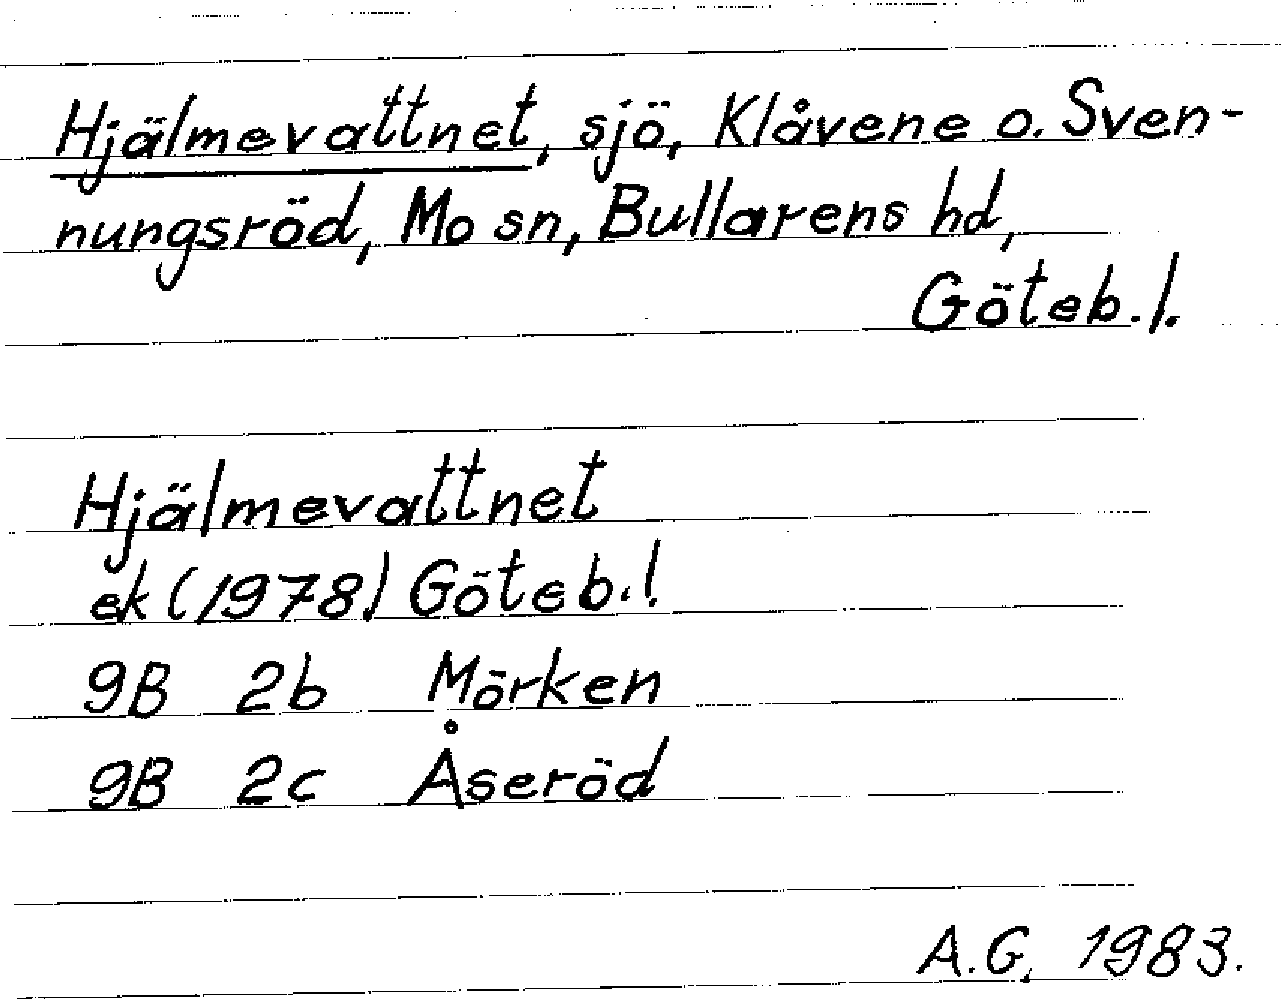 Hjälmevattnet, sjö, Klåvene o. Sven-
nungsröd, Mo sn, Bullarens hd,
Göteb. l.
Hjälmevattnet
ek (1978) Göteb. l.
9B 2b Mörken
9B 2c Åseröd
A.G. 1983.